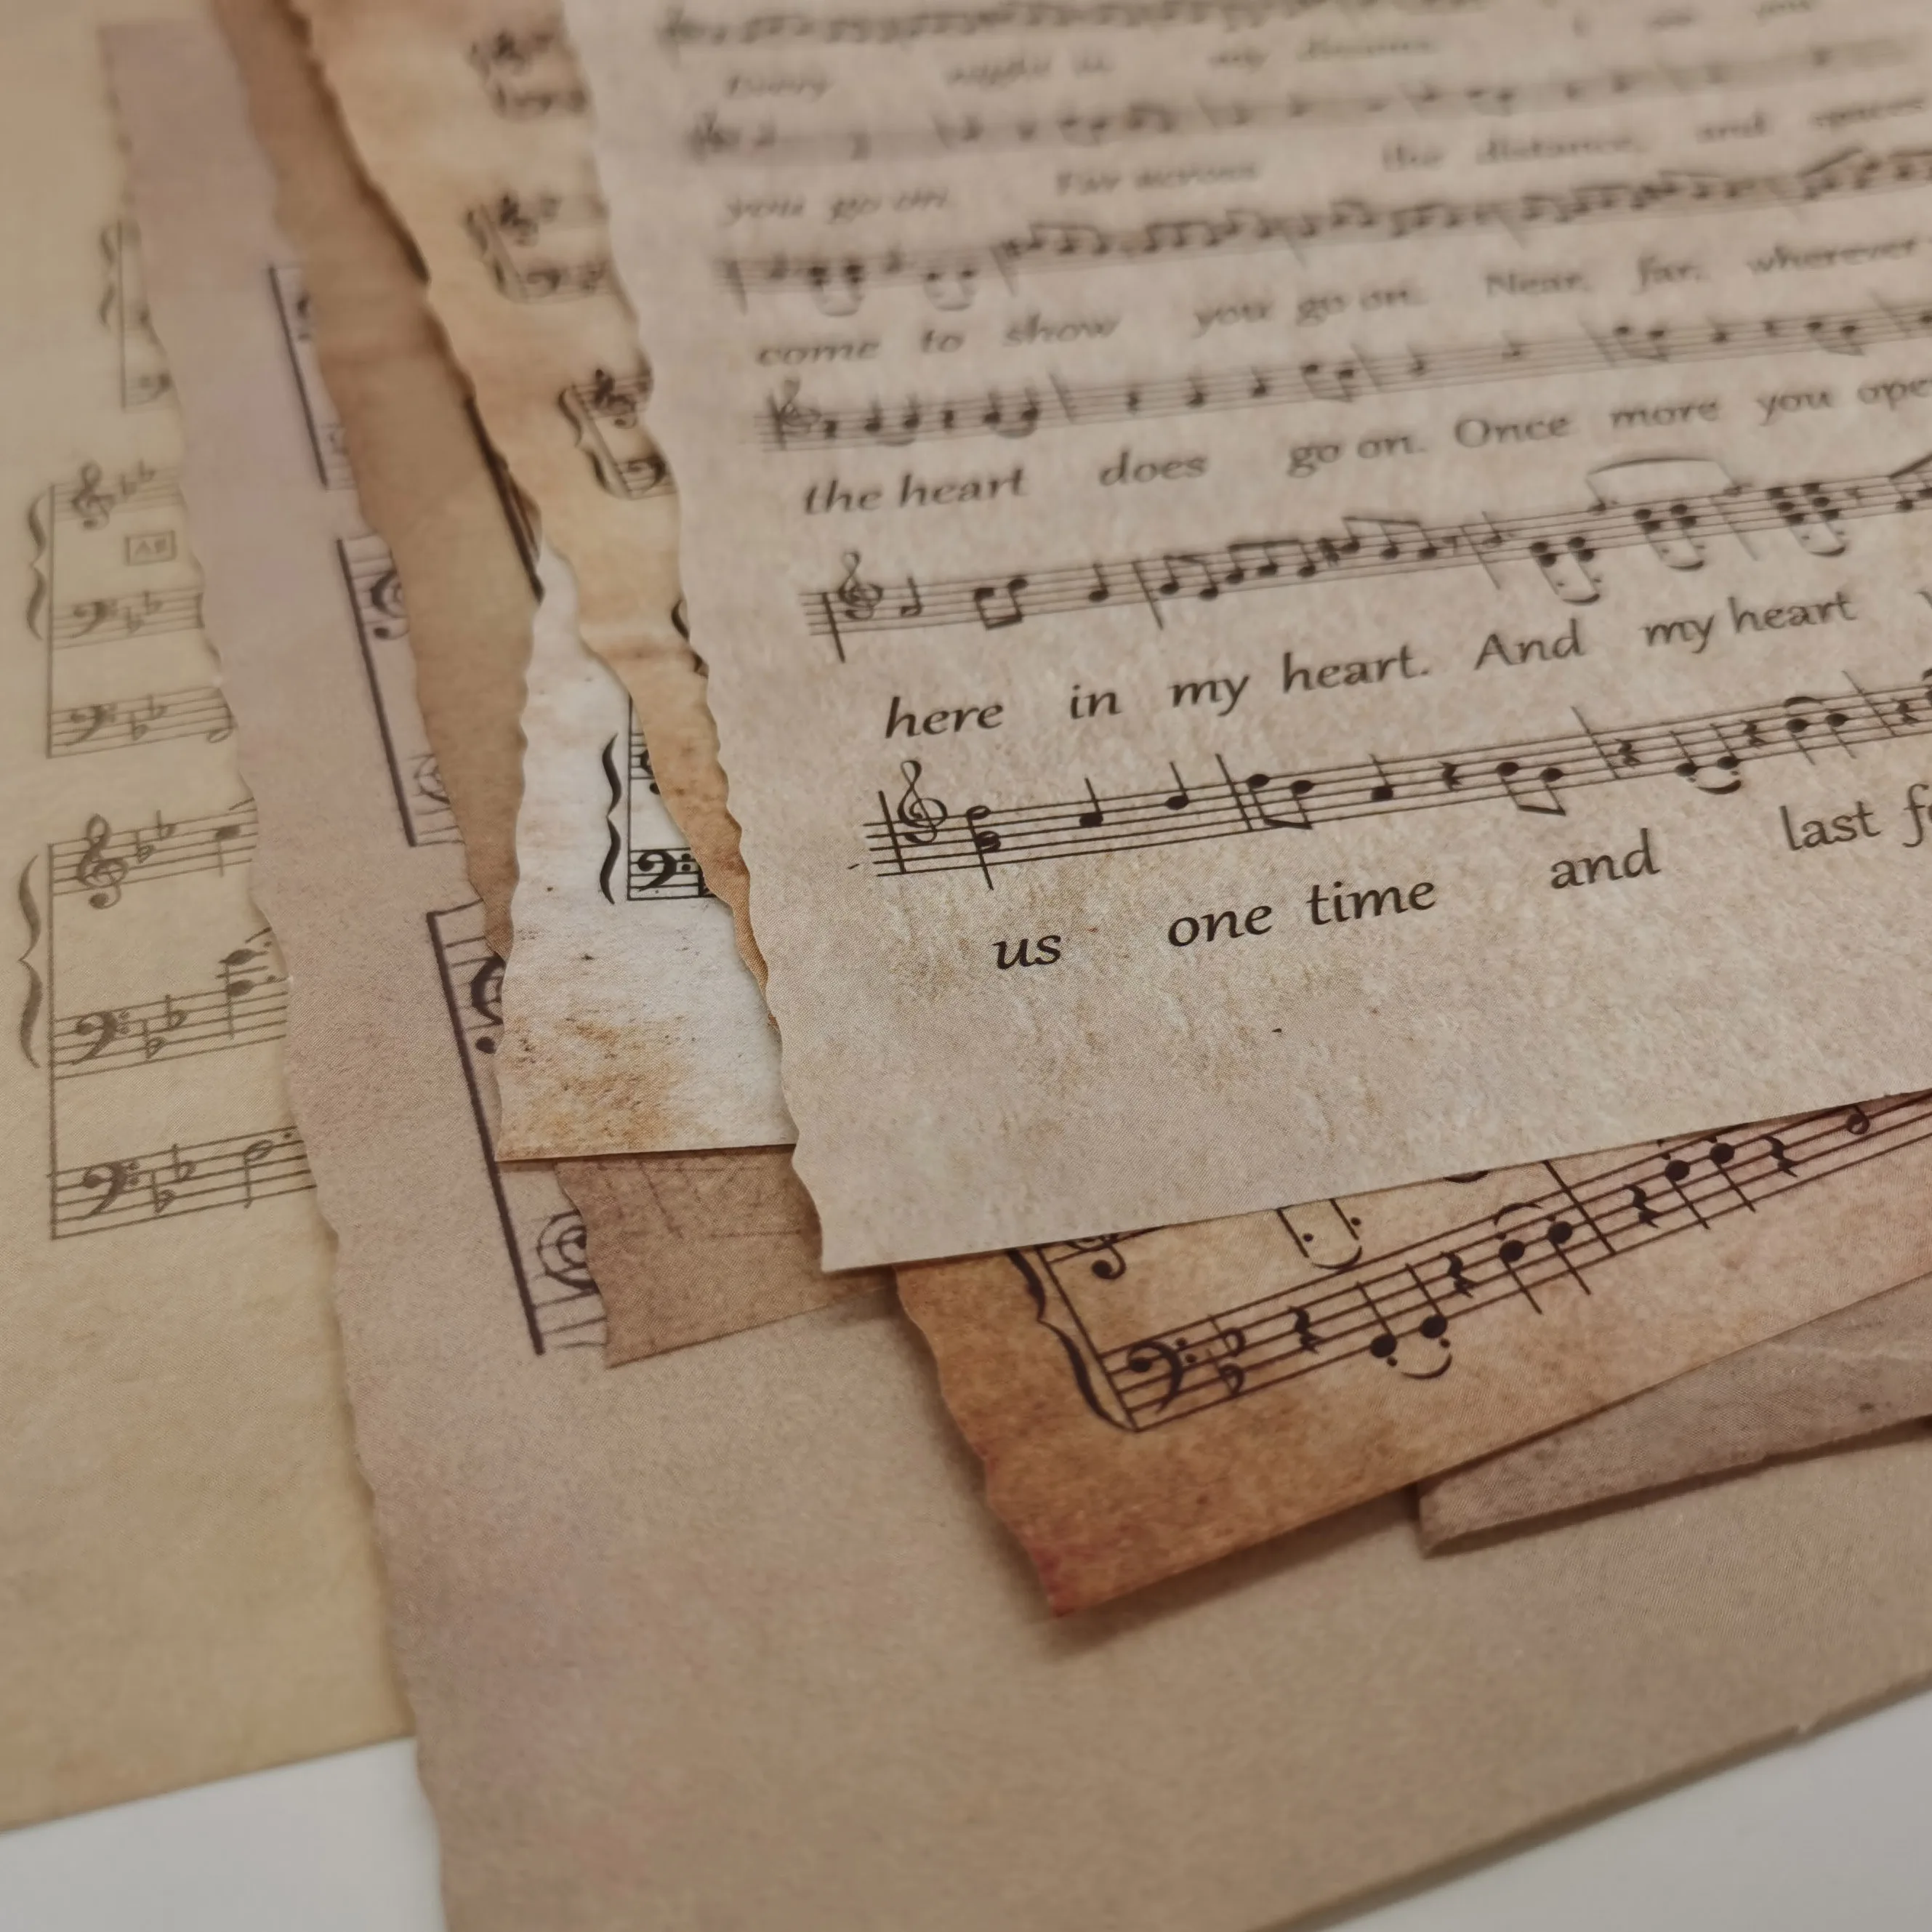 Every night in my dreams I see you
you go on. Far across the distance, and spaces
come to show you go on. Near, far, wherever
the heart does go on. Once more you ope
here in my heart. And my heart
us one time and last f